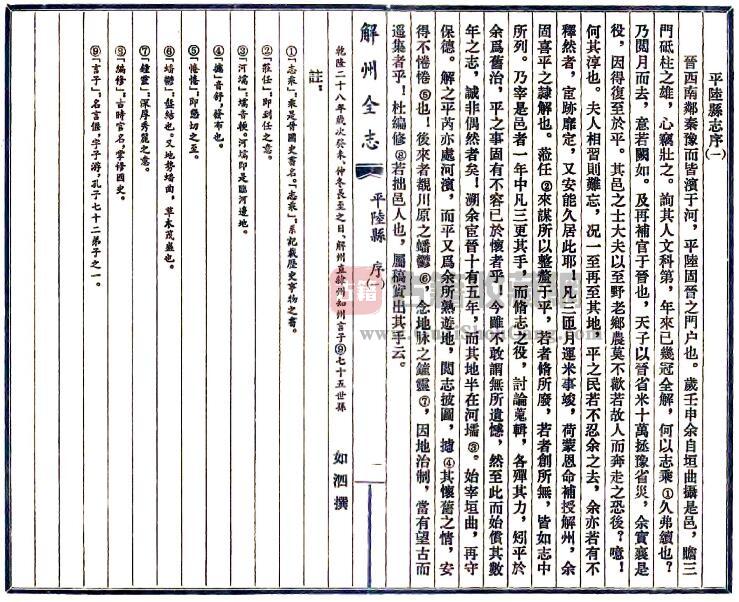 平陸縣志序(一)
晉西南鄰秦豫而皆濱于河，平陸固晉之門户也。歲壬申余自垣曲攝是邑，瞻三
門砥柱之雄，心竊壯之。詢其人文科第，年來已幾冠全解，何以志乘①久弗續也？
乃閲月而去，意若闕如。及再補官于晉也，天子以晉省米十萬拯豫省災，余實襄是
役，因得復至於平。其邑之士大夫以至野老鄉農莫不歡若故人而奔走之恐後？噫！
何其淳也。夫人相習則難忘，况一至再至其地！平之民若不忍余之去，余亦若有不
釋然者，宦跡靡定，又安能久居此耶！凡三匝月運米事竣，荷蒙恩命補授解州，余
固喜平之隷解也。蒞任②來謀所以整釐乎平，若者脩所廢，若者創所無，皆如志中
所列。乃宰是邑者一年中凡三更其手，而脩志之役，討論蒐輯，各殫其力，矧平於
余爲舊治，平之事固有不容已於懷者乎！今雖不敢謂無所遺憾，然至此而始償其數
年之志，誠非偶然者矣！溯余宦晉十有五年，而其地半在河壖③。始宰垣曲，再守
保德。解之平芮亦處河濱，而平又爲余所熟遊地，閲志披圖，攄④其懷舊之情，安
得不惓惓⑤也！後來者覩川原之蟠鬱⑥，念地脉之鐘靈⑦，因地治制，當有望古而
遥集者乎！杜編修⑧若拙邑人也，屬稿實出其手云。
解州全志
平陸縣 序(一)
一
乾隆二十八年歲次癸未、仲冬長至之日、解州直隷州知州言子⑨七十五世孫
如泗撰
註：
①「志乘」：乘是晉國史書名。「志乘」：系記載歷史事物之書。
②「蒞任」：即到任之意。
③「河壖」：壖音軟。河壖即是臨河邊地。
④「攄」音舒，發布也。
⑤「惓惓」：即懇切之至。
⑥「蟠鬱」：盤結也。又地勢蟠曲，草木茂盛也。
⑦「鐘靈」：深厚秀麗之意。
⑧「編修」：古時官名，掌修國史。
⑨「言子」：名言偃，字子游，孔子七十二弟子之一。